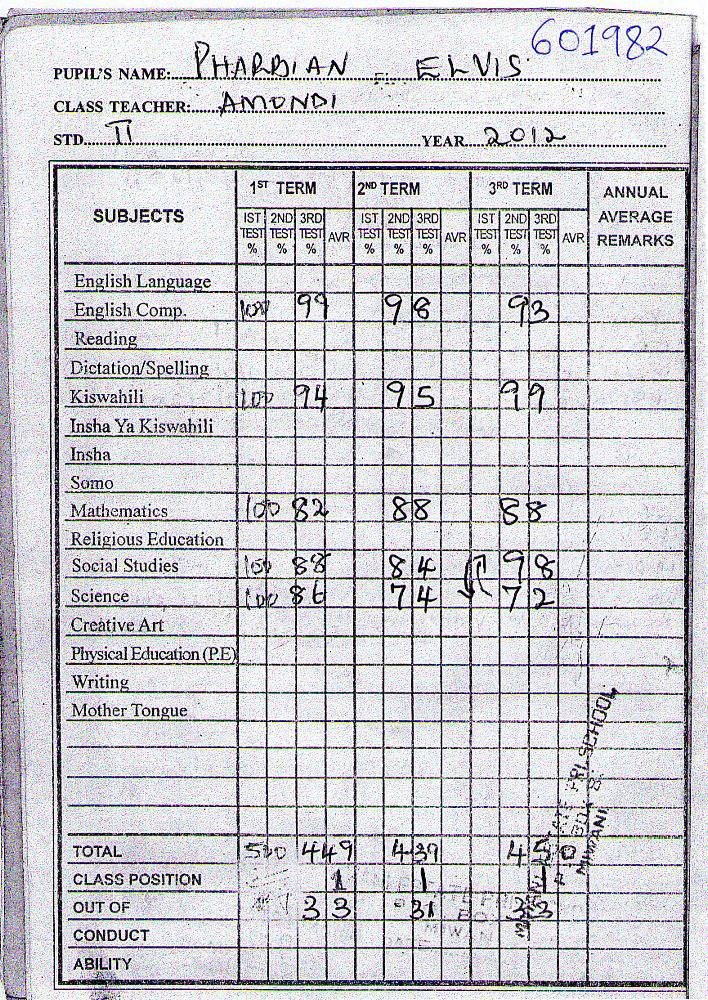 601982
PUPIL'S NAME: PHARDIAN ELVIS
CLASS TEACHER: AMONDI
STD. II YEAR 2012
SUBJECTS 1ST TERM 2ND TERM 3RD TERM ANNUAL AVERAGE REMARKS
IST TEST % 2ND TEST % 3RD TEST % AVR IST TEST % 2ND TEST % 3RD TEST % AVR IST TEST % 2ND TEST % 3RD TEST % AVR
English Language
English Comp. 100 99 98 93
Reading
Dictation/Spelling
Kiswahili 100 94 95 99
Insha Ya Kiswahili
Insha
Somo
Mathematics 100 82 88 88
Religious Education
Social Studies 100 88 84 98
Science 100 86 74 72
Creative Art
Physical Education (P.E)
Writing
Mother Tongue
TOTAL 500 449 439 450
CLASS POSITION 1 1 1
OUT OF 33 31 33
CONDUCT
ABILITY
PRI SCHOOL
BOX
MIWANI